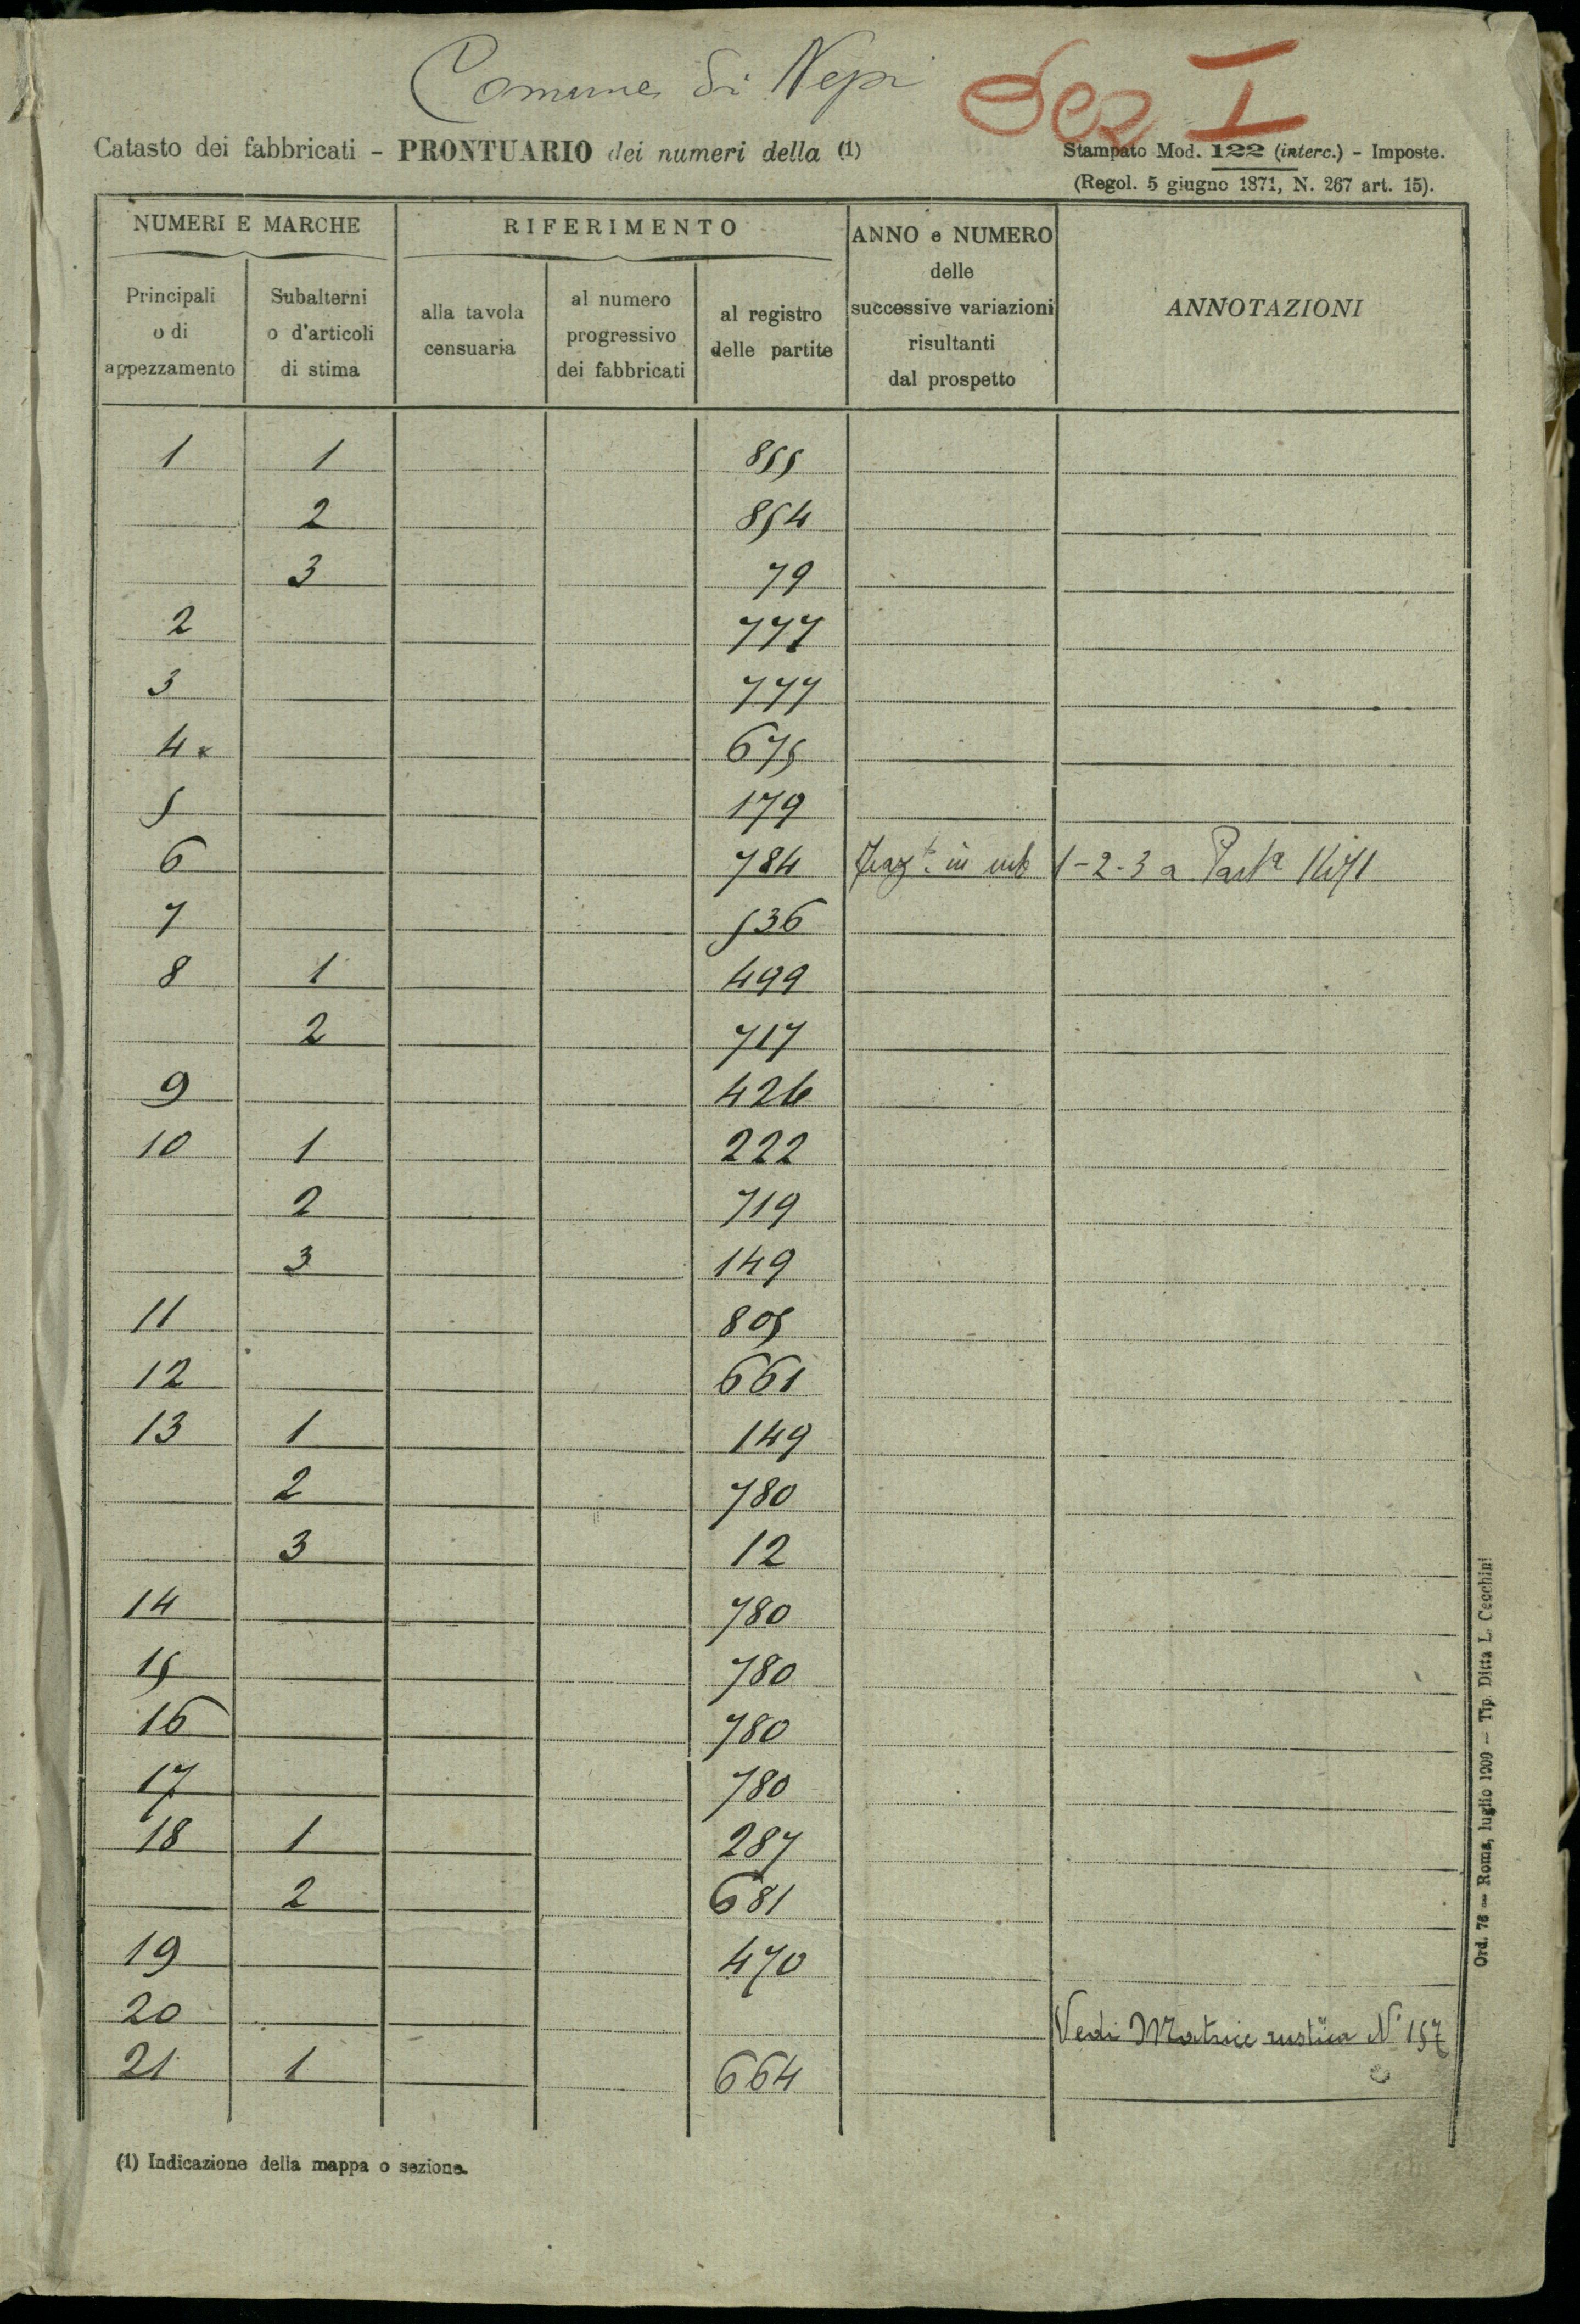 Comune di Nepi
Sez I
Catasto dei fabbricati - PRONTUARIO dei numeri della (1)
Stampato Mod. 122 (interc.) - Imposte.
(Regol. 5 giugno 1871, N. 267 art. 15).
NUMERI E MARCHE
RIFERIMENTO
ANNO e NUMERO delle successive variazioni risultanti dal prospetto
ANNOTAZIONI
Principali o di appezzamento
Subalterni o d'articoli di stima
alla tavola censuaria
al numero progressivo dei fabbricati
al registro delle partite
1 1 855
2 854
3 79
2 777
3 777
4 675
5 179
6 784 in sub 1-2-3 a Parta
7 536
8 1 499
2 717
9 426
10 1 222
2 719
3 149
11 805
12 661
13 1 149
2 780
3 12
14 780
15 780
16 780
17 780
18 1 287
2 681
19 470
20 Vedi Matrice rustica N° 157
21 1 664
(1) Indicazione della mappa o sezione.
Ord. 76 — Roma, luglio 1900 — Tip. Ditta L. Cecchini